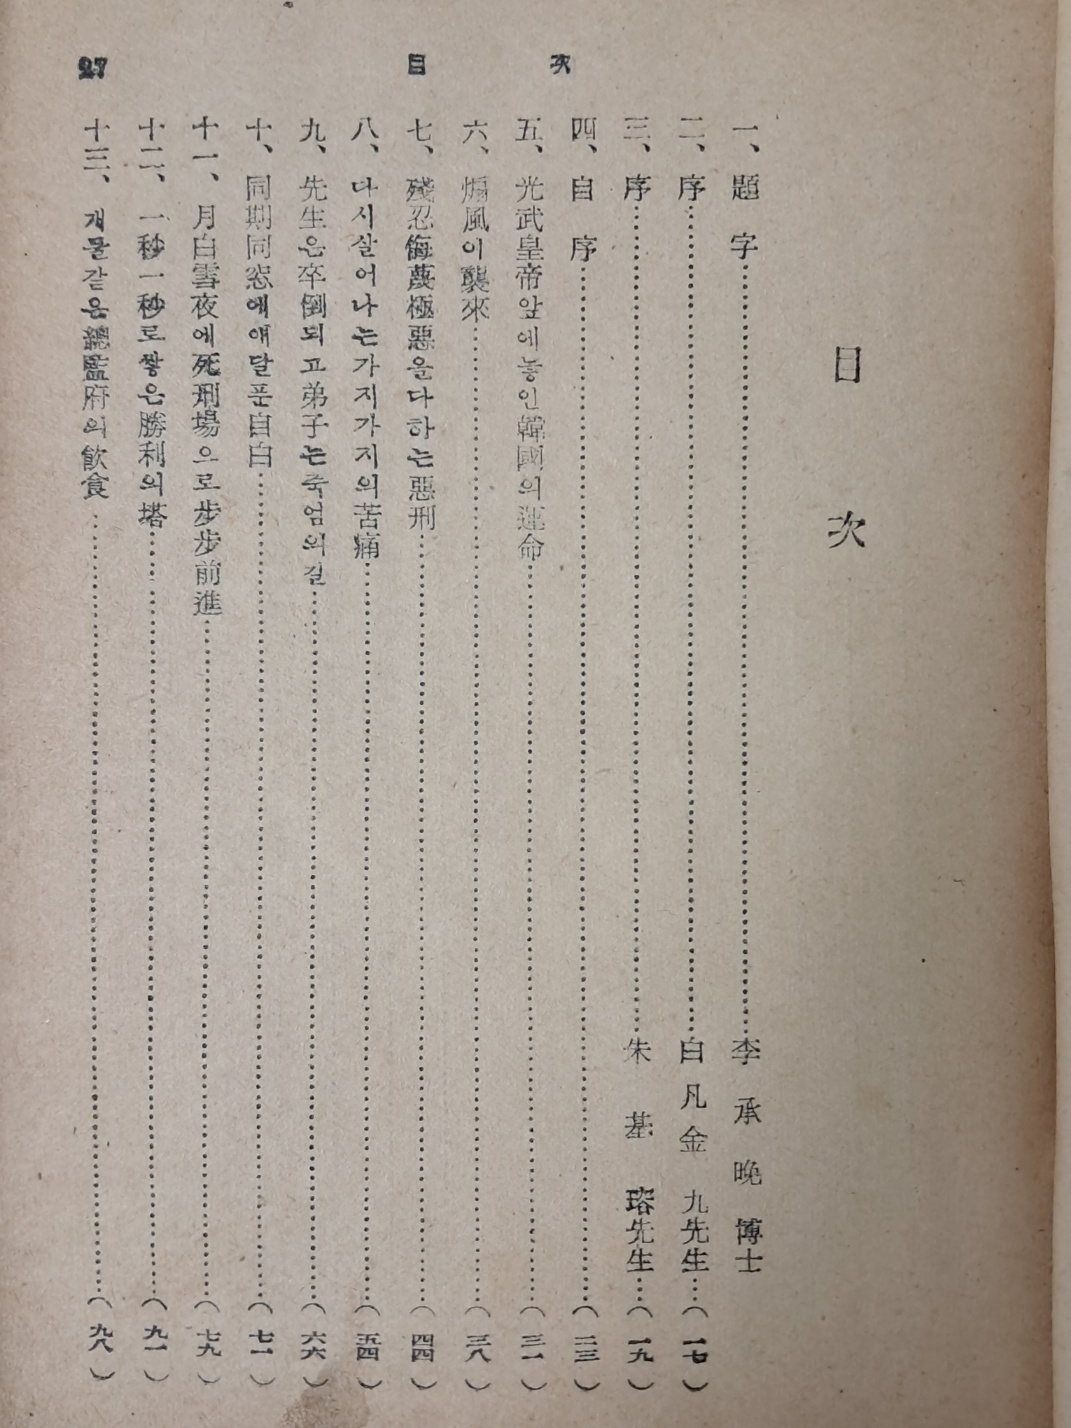 27 目 次
目 次
一、題 字……李 承 晩 博士
二、序……白凡金 九先生……(一七)
三、序……朱 基 瑢先生……(一九)
四、自 序……(二三)
五、光武皇帝앞에놓인韓國의運命……(三一)
六、煽風이襲來……(三八)
七、殘忍侮蔑極惡을다하는惡刑……(四四)
八、다시살어나는가지가지의苦痛……(五四)
九、先生은卒倒되고弟子는죽엄의길……(六六)
十、同期同窓에애달푼自白……(七一)
十一、月白雪夜에死刑場으로步步前進……(七九)
十二、一秒一秒로쌓은勝利의塔……(九一)
十三、개물같은總監府의飮食……(九八)